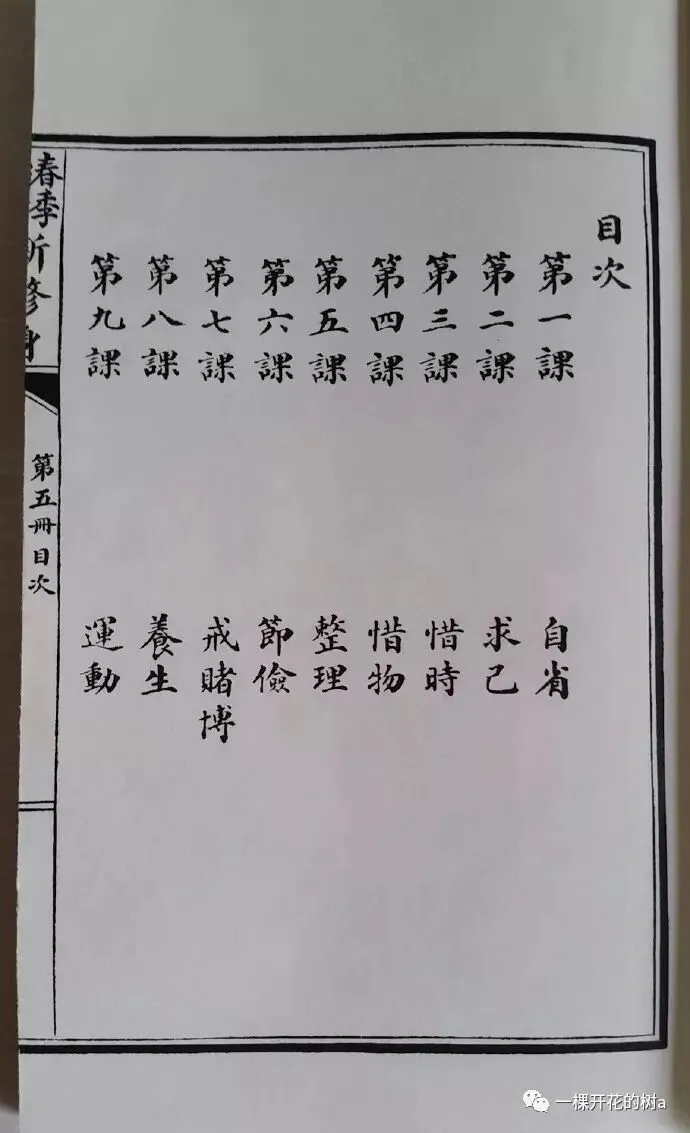 目次
第一課 自省
第二課 求己
第三課 惜時
第四課 惜物
第五課 整理
第六課 節儉
第七課 戒賭博
第八課 養生
第九課 運動
春季新修身
第五冊目次
一棵开花的树a